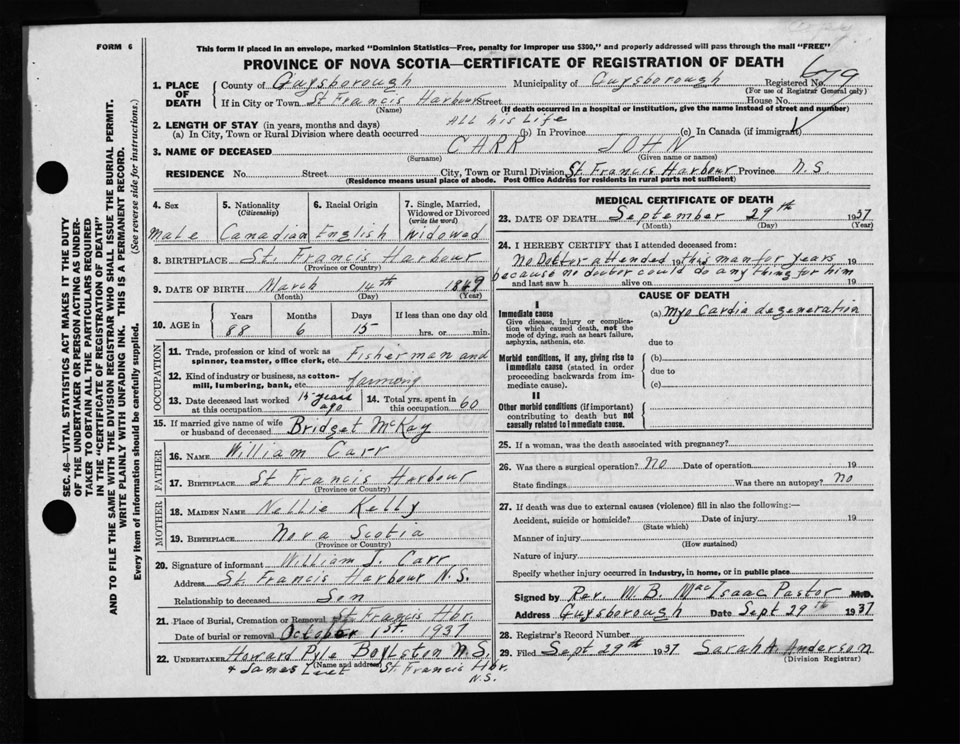 Copy.
FORM 6
This form if placed in an envelope, marked "Dominion Statistics—Free, penalty for improper use $300," and properly addressed will pass through the mail "FREE"
PROVINCE OF NOVA SCOTIA—CERTIFICATE OF REGISTRATION OF DEATH
1. PLACE OF DEATH
County of Guysborough Municipality of Guysborough Registered No. 679
(For use of Registrar General only)
If in City or Town St Francis Harbour Street House No.
(Name) (If death occurred in a hospital or institution, give the name instead of street and number)
2. LENGTH OF STAY (in years, months and days) All his Life
(a) In City, Town or Rural Division where death occurred (b) In Province (c) In Canada (if immigrant)
3. NAME OF DECEASED CARR JOHN
(Surname) (Given name or names)
RESIDENCE No. Street City, Town or Rural Division St. Francis Harbour Province N.S
(Residence means usual place of abode. Post Office Address for residents in rural parts not sufficient)
4. Sex 5. Nationality (Citizenship) 6. Racial Origin 7. Single, Married, Widowed or Divorced (write the word)
Male Canadian English Widowed
8. BIRTHPLACE St. Francis Harbour
(Province or Country)
9. DATE OF BIRTH March 14th 1849
(Month) (Day) (Year)
10. AGE in Years Months Days If less than one day old
88 6 15 hrs. or min.
OCCUPATION
11. Trade, profession or kind of work as spinner, teamster, office clerk, etc. Fisherman and
12. Kind of industry or business, as cotton-mill, lumbering, bank, etc. farming
13. Date deceased last worked at this occupation 15 years ago
14. Total yrs. spent in this occupation 60
15. If married give name of wife or husband of deceased Bridget McKay
FATHER
16. NAME William Carr
17. BIRTHPLACE St Francis Harbour
(Province or Country)
MOTHER
18. MAIDEN NAME Nellie Kelly
19. BIRTHPLACE Nova Scotia
(Province or Country)
20. Signature of informant William J. Carr
Address St. Francis Harbour N.S.
Relationship to deceased Son
21. Place of Burial, Cremation or Removal St Francis Hbr.
Date of burial or removal October 1st. 1937
22. UNDERTAKER Howard Pyle Boylston N.S.
(Name and address)
+ James St. Francis Hbr. N.S.
MEDICAL CERTIFICATE OF DEATH
23. DATE OF DEATH September 29th 1937
(Month) (Day) (Year)
24. I HEREBY CERTIFY that I attended deceased from:
No Doctor attended 19 this man for years 19
because no doctor could do any thing for him
and last saw h alive on 19
CAUSE OF DEATH
I
Immediate cause
Give disease, injury or complication which caused death, not the mode of dying, such as heart failure, asphyxia, asthenia, etc.
(a) Myo Cardia degeneration
due to
Morbid conditions, if any, giving rise to immediate cause (stated in order proceeding backwards from immediate cause).
(b)
due to
(c)
II
Other morbid conditions (if important) contributing to death but not causally related to immediate cause.
25. If a woman, was the death associated with pregnancy?
26. Was there a surgical operation? No Date of operation 19
State findings Was there an autopsy? No
27. If death was due to external causes (violence) fill in also the following:—
Accident, suicide or homicide? Date of injury 19
(State which)
Manner of injury
(How sustained)
Nature of injury
Specify whether injury occurred in industry, in home, or in public place
Signed by Rev. W. B. MacIsaac Pastor M.D.
Address Guysborough Date Sept 29th 1937
28. Registrar's Record Number
29. Filed Sept 29th 1937 Sarah A. Anderson
(Division Registrar)
SEC. 46—VITAL STATISTICS ACT MAKES IT THE DUTY
OF THE UNDERTAKER OR PERSON ACTING AS UNDER-
TAKER TO OBTAIN ALL THE PARTICULARS REQUIRED
IN THE "CERTIFICATE OF REGISTRATION OF DEATH"
AND TO FILE THE SAME WITH THE DIVISION REGISTRAR WHO SHALL ISSUE THE BURIAL PERMIT.
WRITE PLAINLY WITH UNFADING INK. THIS IS A PERMANENT RECORD.
Every item of information should be carefully supplied. (See reverse side for instructions.)